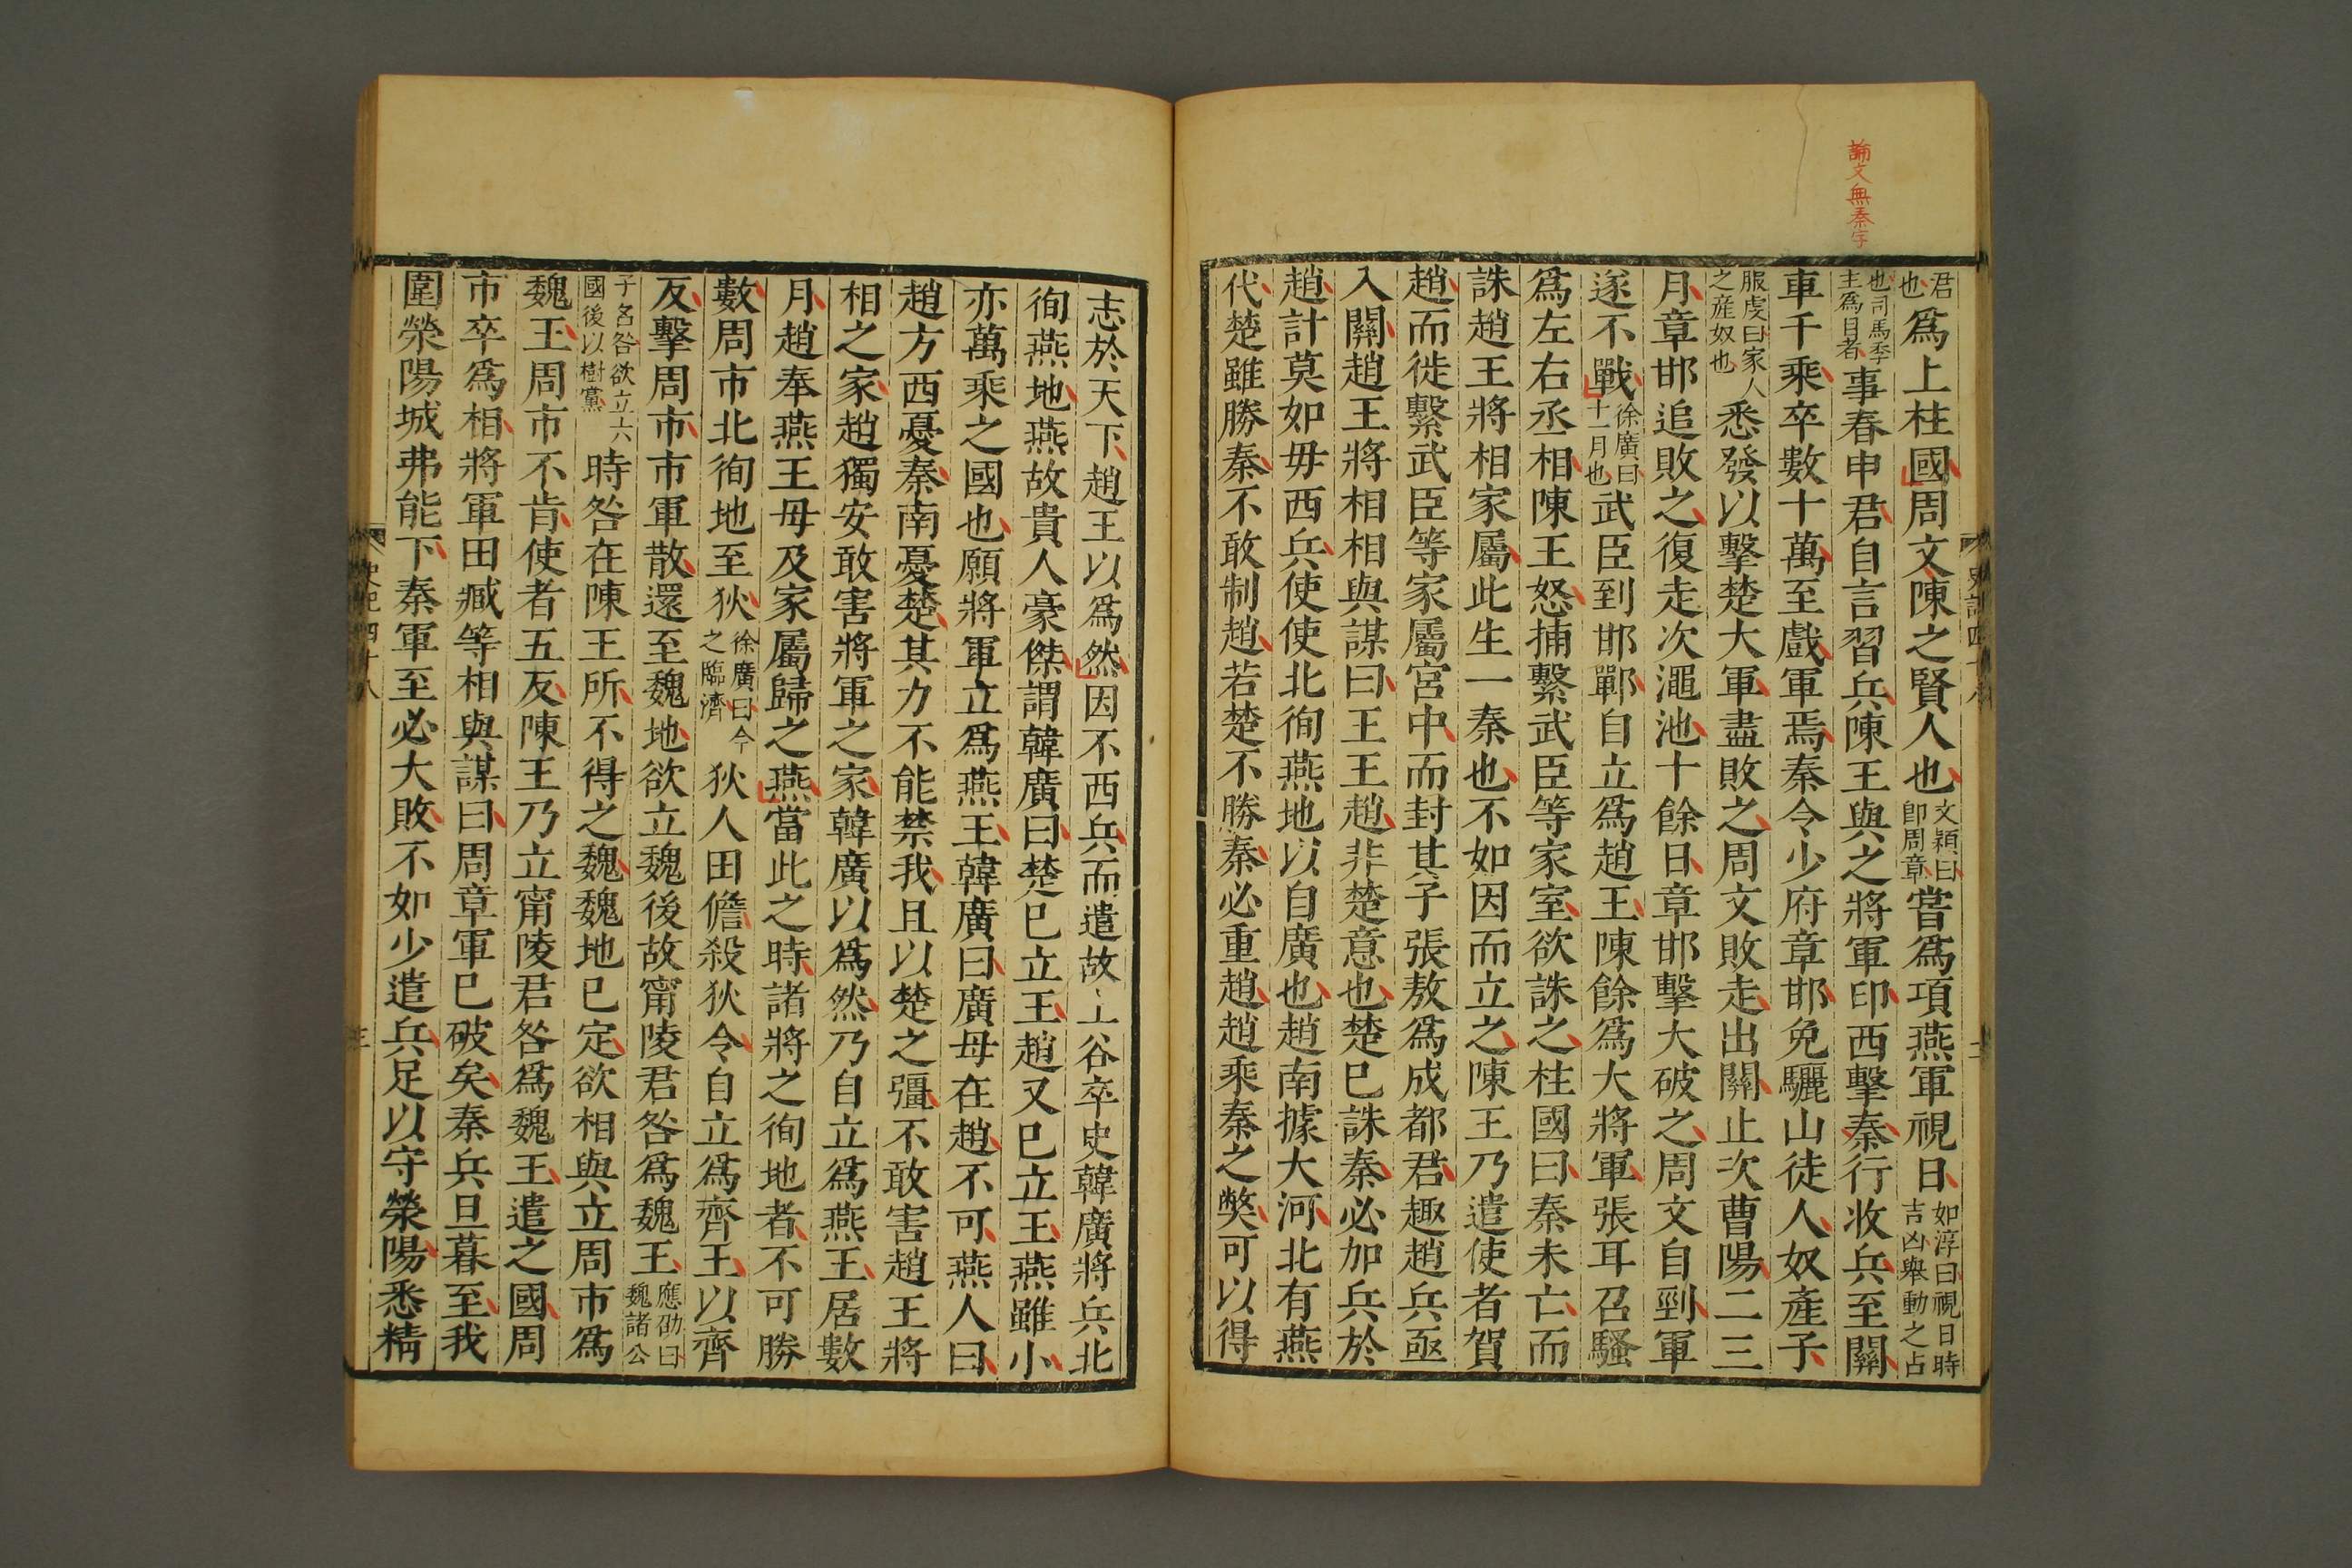 論文無秦字
君也爲上柱國周文陳之賢人也文穎曰卽周章嘗爲項燕軍視日如淳曰視日時吉凶舉動之占
也司馬季主爲日者事春申君自言習兵陳王與之將軍印西擊秦行收兵至關
車千乘卒數十萬至戲軍焉秦令少府章邯免驪山徒人奴產子
服虔曰家人之產奴也悉發以擊楚大軍盡敗之周文敗走出關止次曹陽二三
月章邯追敗之復走次澠池十餘日章邯擊大破之周文自剄軍
遂不戰徐廣曰十一月也武臣到邯鄲自立爲趙王陳餘爲大將軍張耳召騷
爲左右丞相陳王怒捕繫武臣等家室欲誅之柱國曰秦未亡而
誅趙王將相家屬此生一秦也不如因而立之陳王乃遣使者賀
趙而徙繫武臣等家屬宮中而封其子張敖爲成都君趣趙兵亟
入關趙王將相相與謀曰王王趙非楚意也楚已誅秦必加兵於
趙計莫如毋西兵使使北徇燕地以自廣也趙南據大河北有燕
代楚雖勝秦不敢制趙若楚不勝秦必重趙趙乘秦之獘可以得
志於天下趙王以爲然因不西兵而遣故上谷卒史韓廣將兵北
徇燕地燕故貴人豪傑謂韓廣曰楚已立王趙又已立王燕雖小
亦萬乘之國也願將軍立爲燕王韓廣曰廣母在趙不可燕人曰
趙方西憂秦南憂楚其力不能禁我且以楚之彊不敢害趙王將
相之家趙獨安敢害將軍之家韓廣以爲然乃自立爲燕王居數
月趙奉燕王母及家屬歸之燕當此之時諸將之徇地者不可勝
數周市北徇地至狄徐廣曰今之臨濟狄人田儋殺狄令自立爲齊王以齊
反擊周市市軍散還至魏地欲立魏後故甯陵君咎爲魏王應劭曰魏諸公
子名咎欲立六國後以樹黨時咎在陳王所不得之魏魏地已定欲相與立周市爲
魏王周市不肯使者五反陳王乃立甯陵君咎爲魏王遣之國周
市卒爲相將軍田臧等相與謀曰周章軍已破矣秦兵旦暮至我
圍滎陽城弗能下秦軍至必大敗不如少遣兵足以守滎陽悉精
史記四十八
三